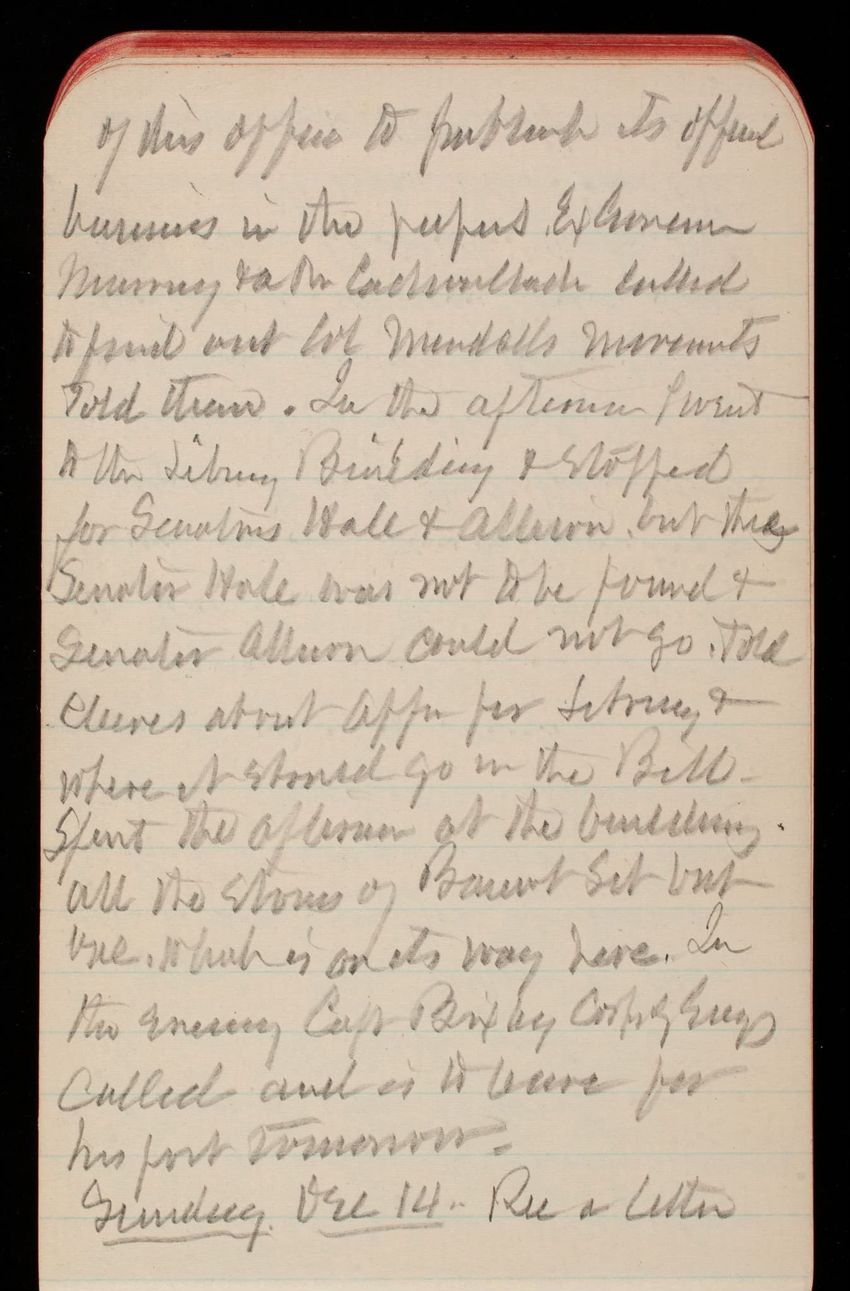 of this office to publish its official
business in the papers. Ex Governor
Murray & a Mr Cadwallader called
to find out Col Mendells movements
Told them. In the afternoon I went
to the Library Building & stopped
for Senators Hale & Allison. but they
Senator Hale was not to be found &
Senator Allison could not go. Told
Cleaves about Appn for Library &
where it should go in the Bill.
Spent the afternoon at the building.
all the stones of Basmt Set but
one. which is on its way here. In
the evening Capt Bixby Corps of Engs
Called and is to leave for
his post tomorrow.
Sunday. Dec 14. Rec a letter